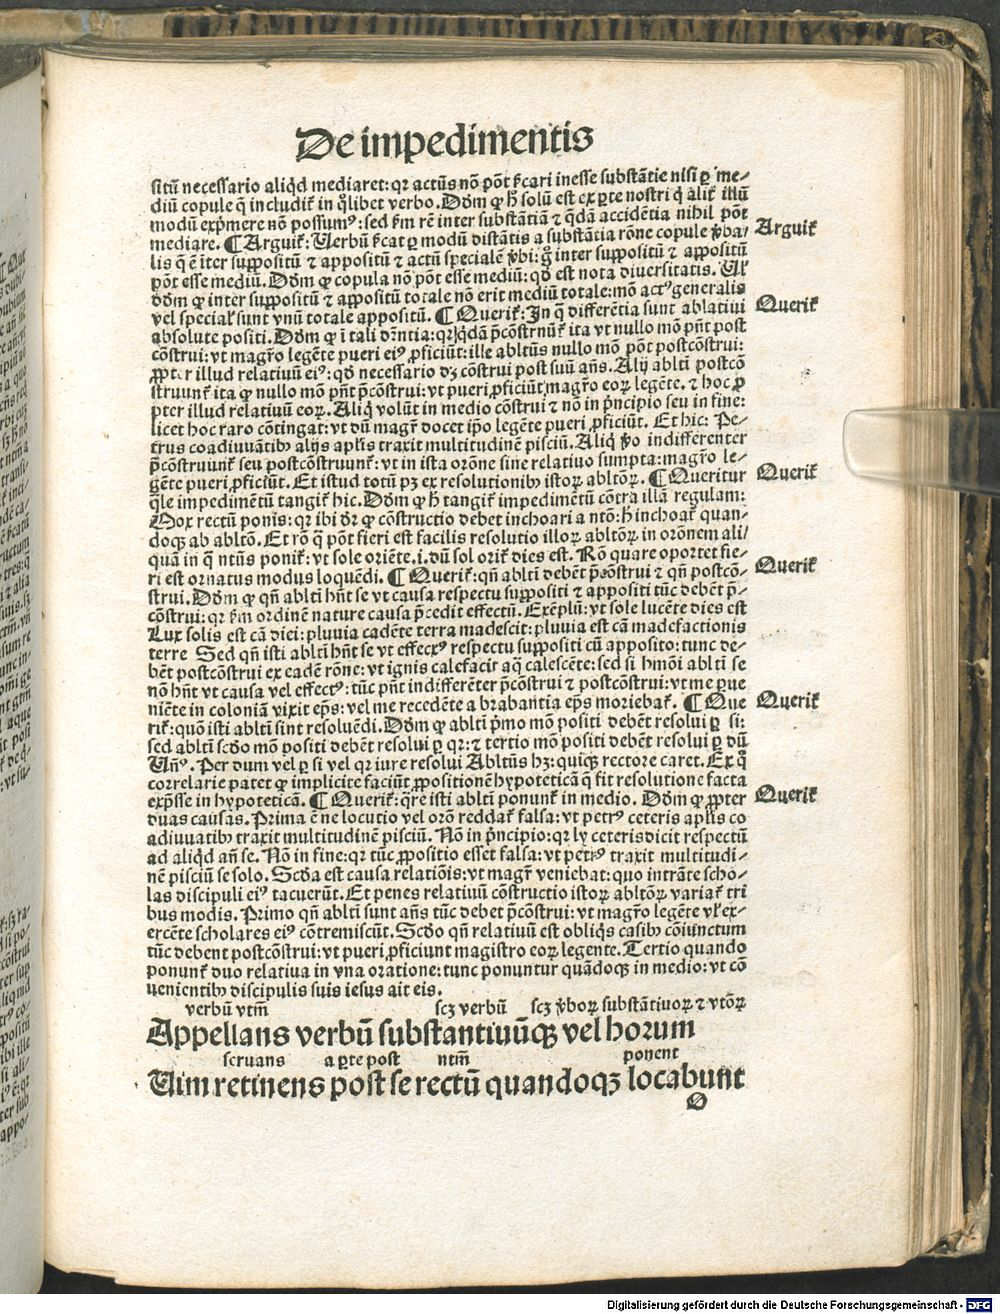 De impedimentis
sitū necessario aliq̇d mediaret: qr actūs nō pōt ſcari inesse substātie nisi ꝑ me-
diū copule q̄ includit̄ in q̄libet verbo. Dōm ꝙ h̄ solū est ex ꝑte nostri q̇ alit̄ illū
modū exp̄mere nō possumꝰ: sed ſm rē inter substātiā ⁊ q̄dā accidētia nihil pōt
mediare. ¶ Arguit̄: Verbū ſcat ꝑ modū distātis a substātia rōne copule v̄ba-
lis q̄ ē īter suppositū ⁊ appositū ⁊ actū specialē v̄bi: g̊ inter suppositū ⁊ appositū
Arguit̄
pōt esse mediū. Dōm ꝙ copula nō pōt esse mediū: qd̄ est nota diuersitatis. Vl̄
dōm ꝙ inter suppositū ⁊ appositū totale nō erit mediū totale: mō actꝰ generalis
vel special̄ sunt vnū totale appositū. ¶ Querit̄: In q̄ differētia sunt ablatiui
Querit̄
absolute positi. Dōm ꝙ ī tali dr̄ntia: qr q̇dā p̄cōstrnūt̄ ita vt nullo mō pn̄t post
cōstrui: vt magr̄o legēte pueri eiꝰ ꝓficiūt: ille abltūs nullo mō pōt postcōstrui:
ꝓpter illud relatiuū eiꝰ: qd̄ necessario dꝫ cōstrui post suū añs. Alij ablti postcō
struunt̄ ita ꝙ nullo mō pn̄t p̄cōstrui: vt pueri ꝓficiūt magr̄o eoꝝ legēte. ⁊ hoc ꝓ
pter illud relatiuū eoꝝ. Aliq̇ volūt in medio cōstrui ⁊ nō in p̄ncipio seu in fine:
licet hoc raro cōtingat: vt dū magr̄ docet ip̄o legēte pueri ꝓficiūt. Et hic: Pe-
trus coadiuuātibꝰ alijs apl̄is traxit multitudinē pisciū. Aliq̇ v̊o indifferenter
p̄cōstruunt̄ seu postcōstruunt̄: vt in ista orōne sine relatiuo sumpta: magr̄o le-
gēte pueri ꝓficiūt. Et istud totū pꝫ ex resolutionibꝰ istoꝝ abltōꝝ. ¶ Queritur
Querit̄
q̄le impedimētū tangit̄ hic. Dōm ꝙ h̄ tangit̄ impedimētū cōtra illā regulam:
Mox rectū ponis: qr ibi dr̄ ꝙ cōstructio debet inchoari a ntō: h̄ inchoat̄ quan-
doqꝫ ab abltō. Et rō q̄ pōt fieri est facilis resolutio illoꝝ abltōꝝ in orōnem ali/
quā in q̄ ntūs ponit̄: vt sole oriēte .i. dū sol orit̄ dies est. Rō quare oportet fie-
ri est ornatus modus loquēdi. ¶ Querit̄: qn̄ ablti debēt p̄cōstrui ⁊ qn̄ postcō-
Querit̄
strui. Dōm ꝙ qn̄ ablti hn̄t se vt causa respectu suppositi ⁊ appositi tūc debēt p̄-
cōstrui: qr ſm ordinē nature causa p̄cedit effectū. Exēplū: vt sole lucēte dies est
Lux solis est cā diei: pluuia cadēte terra madescit: pluuia est cā madefactionis
terre Sed qn̄ isti ablti hn̄t se vt effectꝰ respectu suppositi cū apposito: tunc de-
bēt postcōstrui ex eadē rōne: vt ignis calefacit aq̄ calescēte: sed si hm̄oi ablti se
nō hn̄t vt causa vel effectꝰ: tūc pn̄t indifferēter p̄cōstrui ⁊ postcōstrui: vt me ꝑue
niēte in coloniā vixit ep̄s: vel me recedēte a brabantia ep̄s moriebat̄. ¶ Que
Querit̄
rit̄: quō isti ablti sint resoluēdi. Dōm ꝙ ablti p̄mo mō positi debēt resolui ꝑ si:
sed ablti scd̄o mō positi debēt resolui ꝑ qr: ⁊ tertio mō positi debēt resolui ꝑ dū
Vn̄ꝰ. Per dum vel ꝑ si vel qr iure resolui Abltūs hꝫ: quicqꝫ rectore caret. Ex q̊
correlarie patet ꝙ implicite faciūt ꝓpositionē hypoteticā q̄ fit resolutione facta
exp̄sse in hypoteticā. ¶ Querit̄: q̄re isti ablti ponunt̄ in medio. Dōm ꝙ ꝓpter
Querit̄
duas causas. Prima ē ne locutio vel orō reddat̄ falsa: vt petrꝰ ceteris apl̄is co
adiuuatibꝰ traxit multitudinē pisciū. Nō in p̄ncipio: qr ly ceteris dicit respectū
ad aliq̇d an̄ se. Nō in fine: qr tūc ꝓpositio esset falsa: vt petrꝰ traxit multitudi-
nē pisciū se solo. Scd̄a est causa relatiōis: vt magr̄ veniebat: quo intrāte scho-
las discipuli eiꝰ tacuerūt. Et penes relatiuū cōstructio istoꝝ abltōꝝ variat̄ tri
bus modis. Primo qn̄ ablti sunt an̄s tūc debet p̄cōstrui: vt magr̄o legēte vl̄ ex-
ercēte scholares eiꝰ cōtremiscūt. Scd̄o qn̄ relatiuū est obliq̇s casibꝰ cōiunctum
tūc debent postcōstrui: vt pueri ꝓficiunt magistro eoꝝ legente. Tertio quando
ponunt̄ duo relatiua in vna oratione: tunc ponuntur quādoqꝫ in medio: vt cō
uenientibꝰ discipulis suis iesus ait eis.
verbū vtm̄ scꝫ verbū scꝫ v̄boꝝ substātiuoꝝ ⁊ vtōꝝ
Appellans verbū substantiuūqꝫ vel horum
seruans a ꝑte post ntm̄ ponent
Vim retinens post se rectū quandoqꝫ locabunt
O
Digitalisierung gefördert durch die Deutsche Forschungsgemeinschaft - DFG